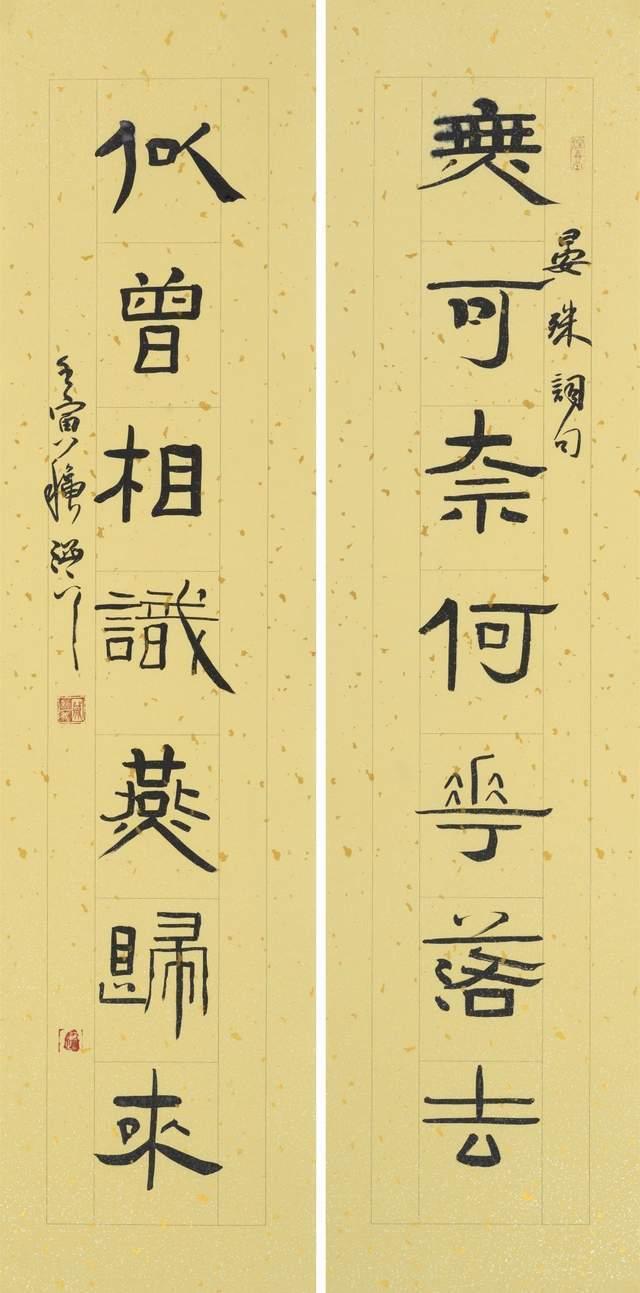 無可奈何花落去
晏殊詞句
似曾相識燕歸來
壬寅